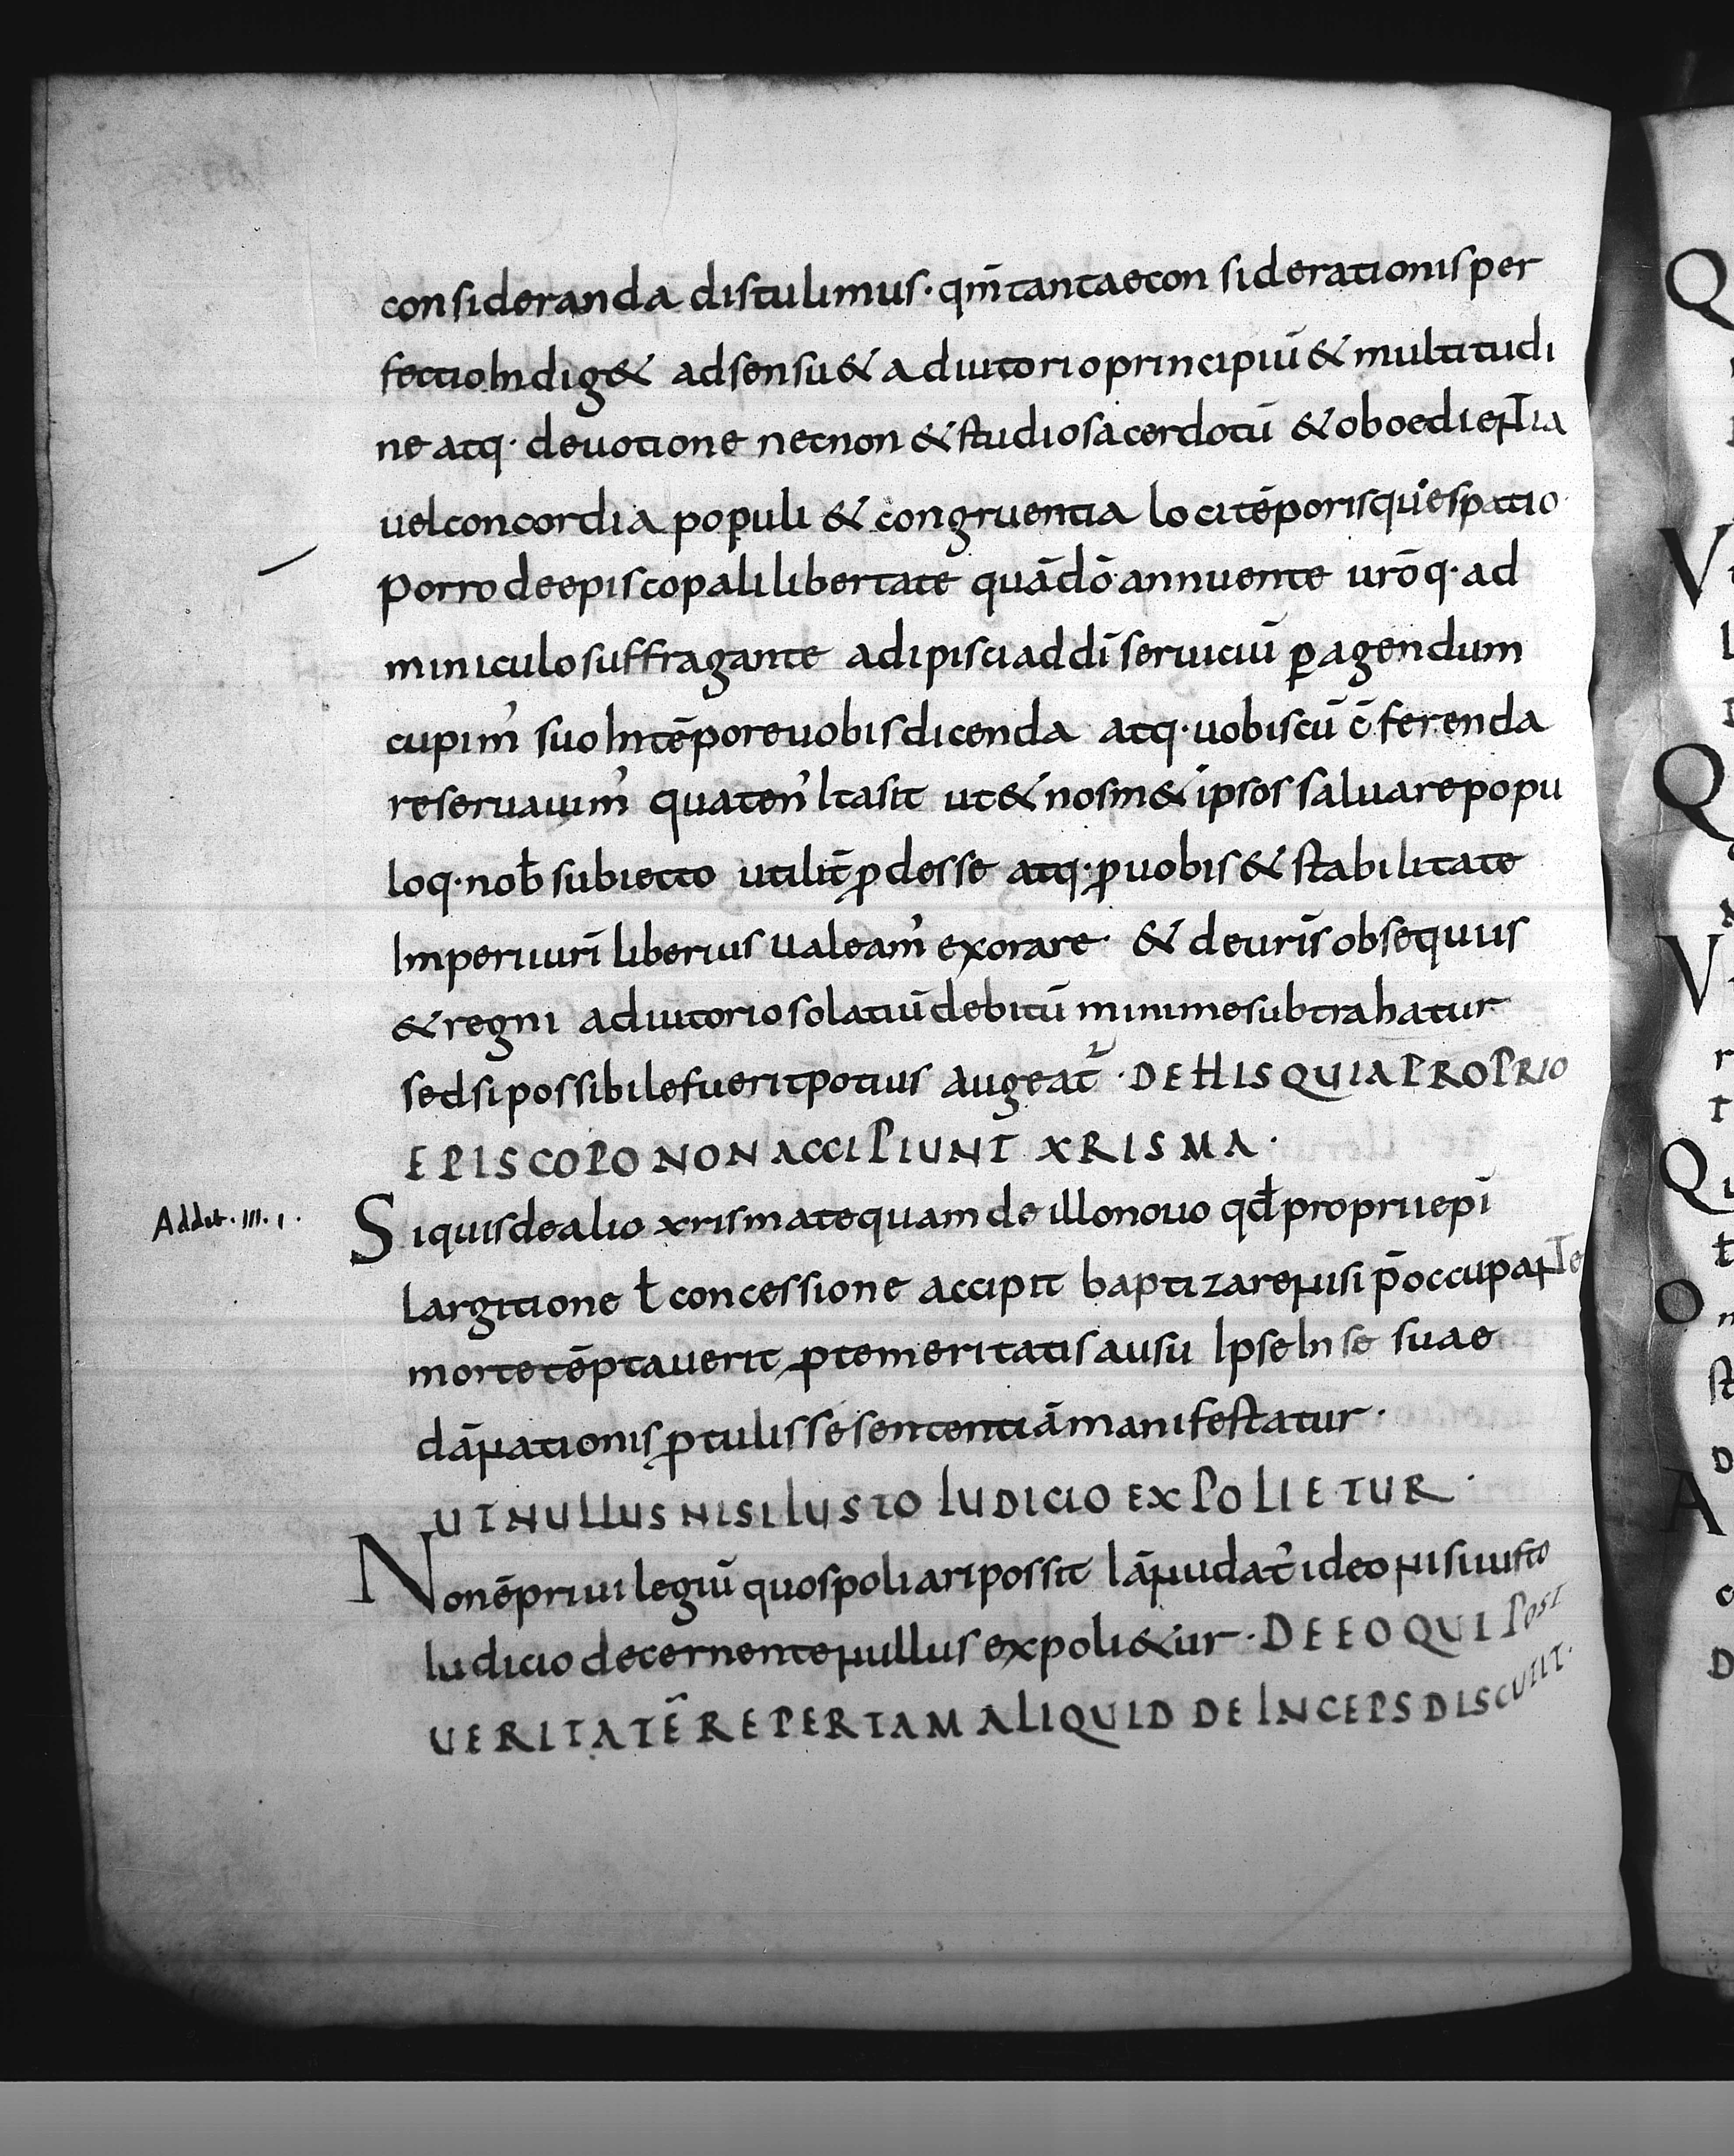 consideranda distulimus· qm̄ tantae considerationis per
fectio Indig& adsensu & adiutorio principiū & multitudi
ne atq· deuotione necnon & studio sacerdotū & oboedientia
uel concordia populi & congruentia loci tēporisqu'e spatio·
Porro de episcopali libertate quā dō annuente urōq· ad
miniculo suffragante adipisci ad dī seruiciū ꝑagendum
cupim' suo In tēpore uobis dicenda atq· uobiscū c̄ferenda
reseruauim' quaten' Ita sit ut & nosm&ipsos saluare popu
loq· nob̄ subiecto utilit̄ ꝓdesse atq· ꝓ uobis & stabilitate
Imperii urī liberius ualeam' exorare· & de urīs obsequiis
& regni adiutorio solatiū debitū minime subtrahatur
sed si possibile fuerit potius augeat̄· DE HIS QUI A PROPRIO
EPISCOPO NON ACCIPIUNT XRISMA·
Addit· III· 1·
Siquis de alio xrismate quam de illo nouo qd̄ proprii epī
largitione ł concessione accipit baptizare nisi p̄occupante
morte tēptauerit ꝓ temeritatis ausu Ipse In se suae
dānationis ꝓtulisse sententiā manifestatur·
UT NULLUS NISI IUSTO IUDICIO EXPOLIETUR·
Non ē priuilegiū quo spoliari possit Iā nudat' ideo nisi iusto
Iudicio decernente nullus expoli&ur· DE EO QUI POST
UERITATĒ REPERTAM ALIQUID DEINCEPS DISCUTIT·